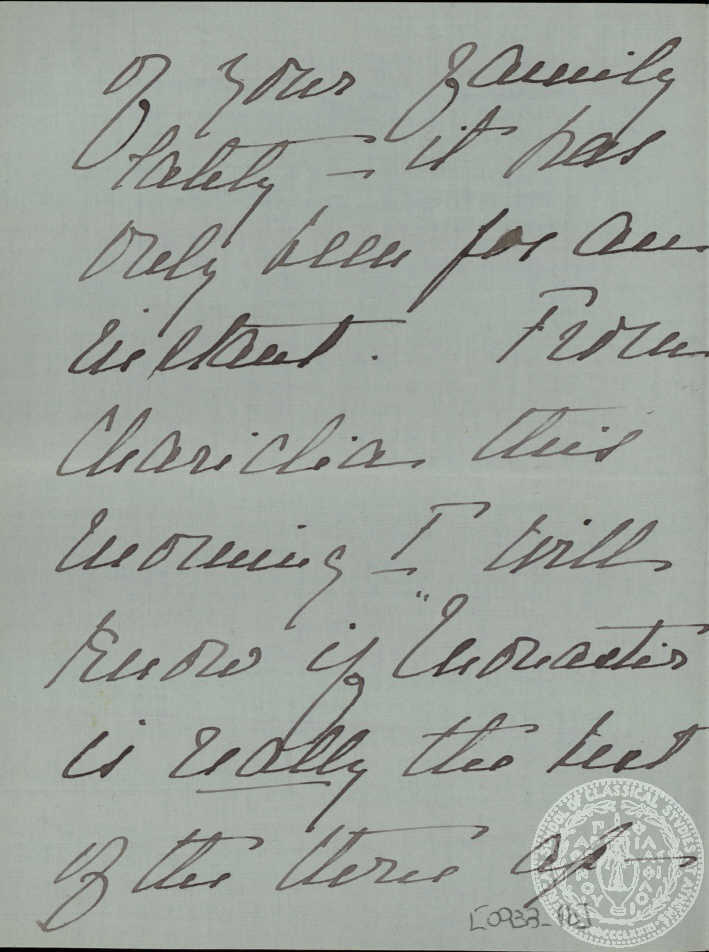 of your family
lately – it has
only been for an
instant. From
Chariclia this
morning I will
know if "Monastir
is really the best
of the three af-
[0938_1b]